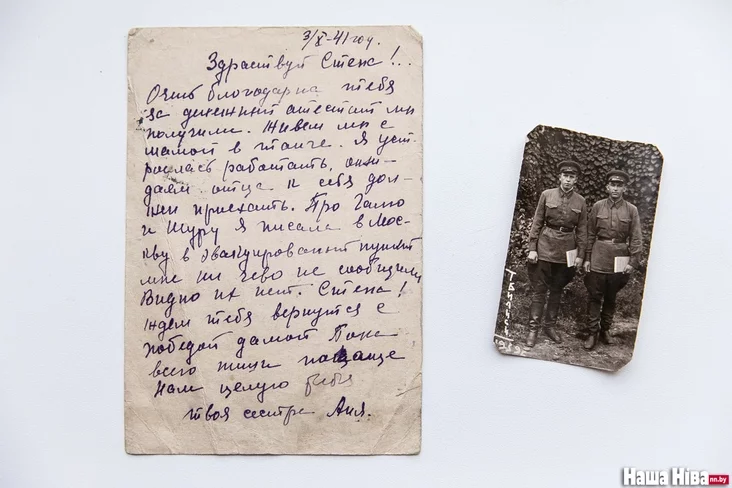 3/X-41 год.
Здраствуй Степа!..
Очень благодарна тебя
за денежный атестат мы
получили. Живем мы с
мамой в
Я уст
роилась работать, ожи-
даем отца к себя дол-
жен приехать. Про Галю
и Шуру я писала в Мос-
кву в эвакуированный пункт
мне ни чево не сообщили
Видно их нет. Степа!
ждем тебя вернутся с
победой дамой Пока
всего пиши почаще
Нам целую
твоя сестра Аня.
Тбилиси
Наша Ніва nn.by